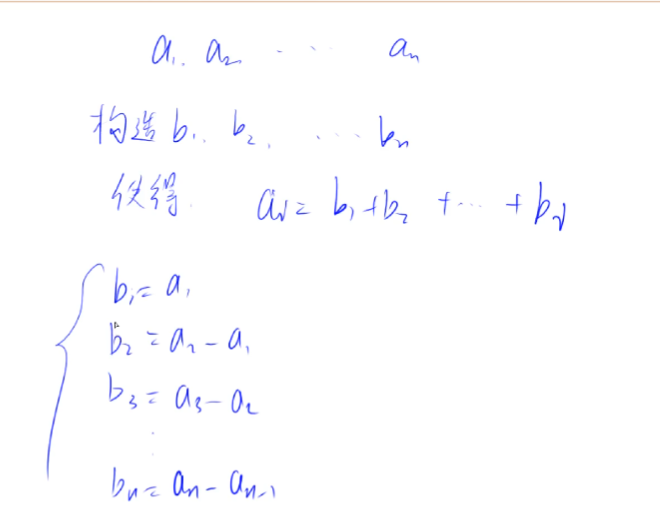 a₁. a₂ ····· aₙ
构造 b₁. b₂, ···· bₙ
使得. aᵢ = b₁+b₂ +··· + bᵢ
b₁= a₁
b₂ = a₂ - a₁
b₃ = a₃ - a₂
⋮
bₙ = aₙ - aₙ₋₁